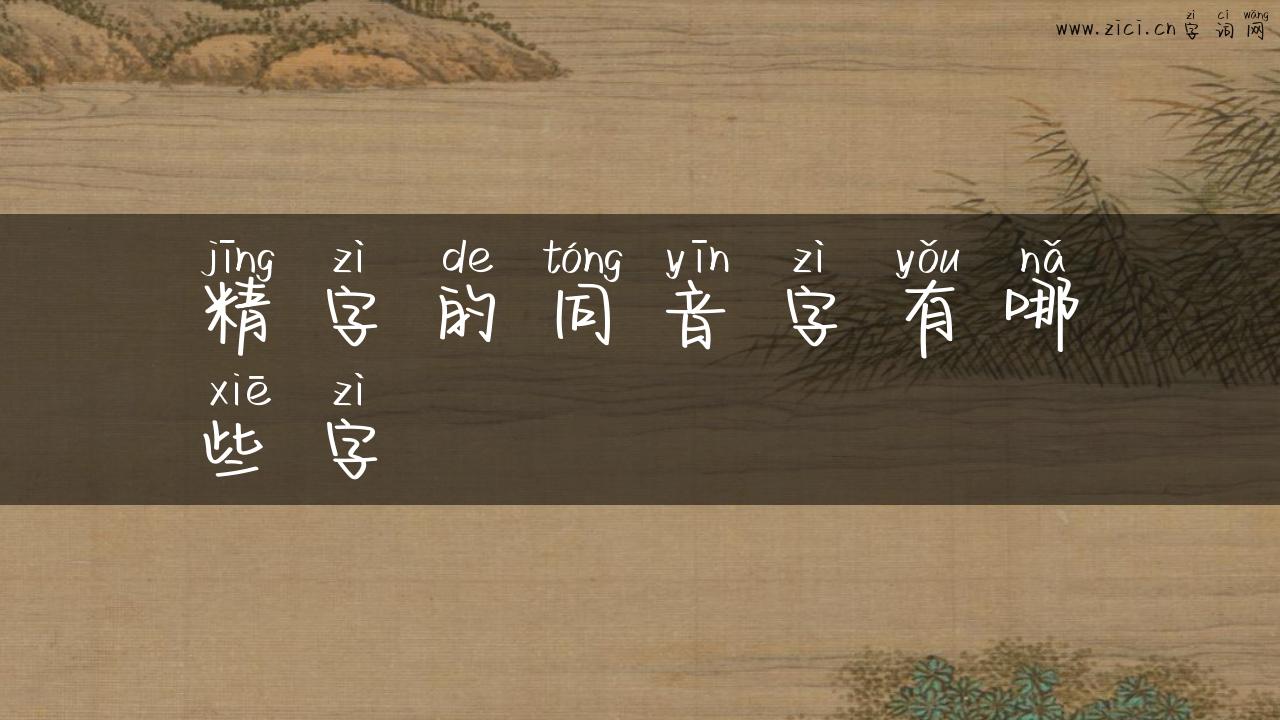 zì cí wǎng
www.zici.cn 字词网
jīng zì de tóng yīn zì yǒu nǎ
精字的同音字有哪
xiē zì
些字